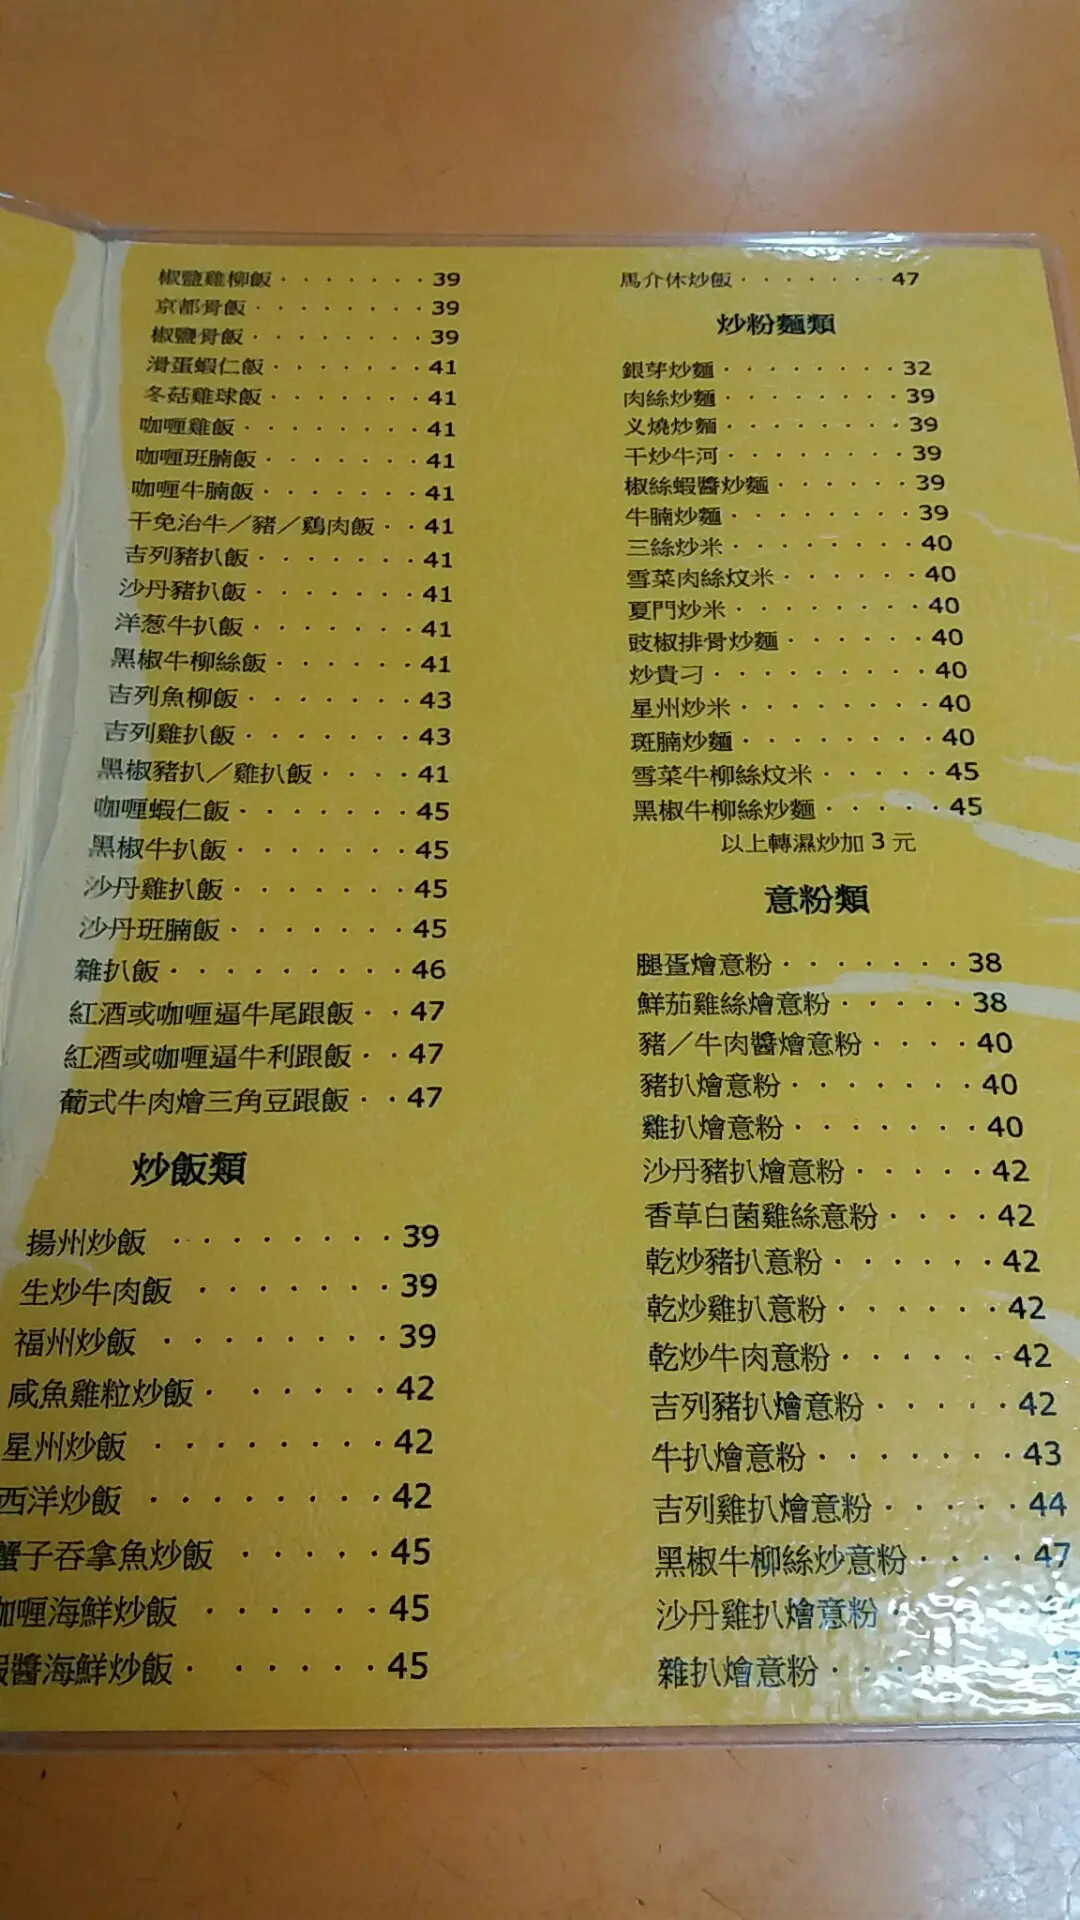 椒鹽雞柳飯 · · · · · · · 39
京都骨飯 · · · · · · · · 39
椒鹽骨飯 · · · · · · · · 39
滑蛋蝦仁飯 · · · · · · · 41
冬菇雞球飯 · · · · · · · 41
咖喱雞飯 · · · · · · · · 41
咖喱班腩飯 · · · · · · · 41
咖喱牛腩飯 · · · · · · · 41
干免治牛／豬／鷄肉飯 · · 41
吉列豬扒飯 · · · · · · · 41
沙丹豬扒飯 · · · · · · · 41
洋葱牛扒飯 · · · · · · · 41
黑椒牛柳絲飯 · · · · · · 41
吉列魚柳飯 · · · · · · · 43
吉列雞扒飯 · · · · · · · 43
黑椒豬扒／雞扒飯 · · · · 41
咖喱蝦仁飯 · · · · · · · 45
黑椒牛扒飯 · · · · · · · 45
沙丹雞扒飯 · · · · · · · 45
沙丹班腩飯 · · · · · · · 45
雜扒飯 · · · · · · · · · 46
紅酒或咖喱逼牛尾跟飯 · · 47
紅酒或咖喱逼牛利跟飯 · · 47
葡式牛肉燴三角豆跟飯 · · 47
炒飯類
揚州炒飯 · · · · · · · · 39
生炒牛肉飯 · · · · · · · 39
福州炒飯 · · · · · · · · 39
咸魚雞粒炒飯 · · · · · · 42
星州炒飯 · · · · · · · · 42
西洋炒飯 · · · · · · · · 42
蟹子吞拿魚炒飯 · · · · · 45
咖喱海鮮炒飯 · · · · · · 45
醬海鮮炒飯 · · · · · · 45
馬介休炒飯 · · · · · · · 47
炒粉麵類
銀芽炒麵 · · · · · · · · 32
肉絲炒麵 · · · · · · · · 39
义燒炒麵 · · · · · · · · 39
干炒牛河 · · · · · · · · 39
椒絲蝦醬炒麵 · · · · · · 39
牛腩炒麵 · · · · · · · · 39
三絲炒米 · · · · · · · · 40
雪菜肉絲炆米 · · · · · · 40
夏門炒米 · · · · · · · · 40
豉椒排骨炒麵 · · · · · · 40
炒貴刁 · · · · · · · · · 40
星州炒米 · · · · · · · · 40
斑腩炒麵 · · · · · · · · 40
雪菜牛柳絲炆米 · · · · · 45
黑椒牛柳絲炒麵 · · · · · 45
以上轉濕炒加 3 元
意粉類
腿蛋燴意粉 · · · · · · · 38
鮮茄雞絲燴意粉 · · · · · 38
豬／牛肉醬燴意粉 · · · · 40
豬扒燴意粉 · · · · · · · 40
雞扒燴意粉 · · · · · · · 40
沙丹豬扒燴意粉 · · · · · 42
香草白菌雞絲意粉 · · · · 42
乾炒豬扒意粉 · · · · · · 42
乾炒雞扒意粉 · · · · · · 42
乾炒牛肉意粉 · · · · · · 42
吉列豬扒燴意粉 · · · · · 42
牛扒燴意粉 · · · · · · · 43
吉列雞扒燴意粉 · · · · · 44
黑椒牛柳絲炒意粉 · · · · 47
沙丹雞扒燴意粉
雜扒燴意粉 · · ·